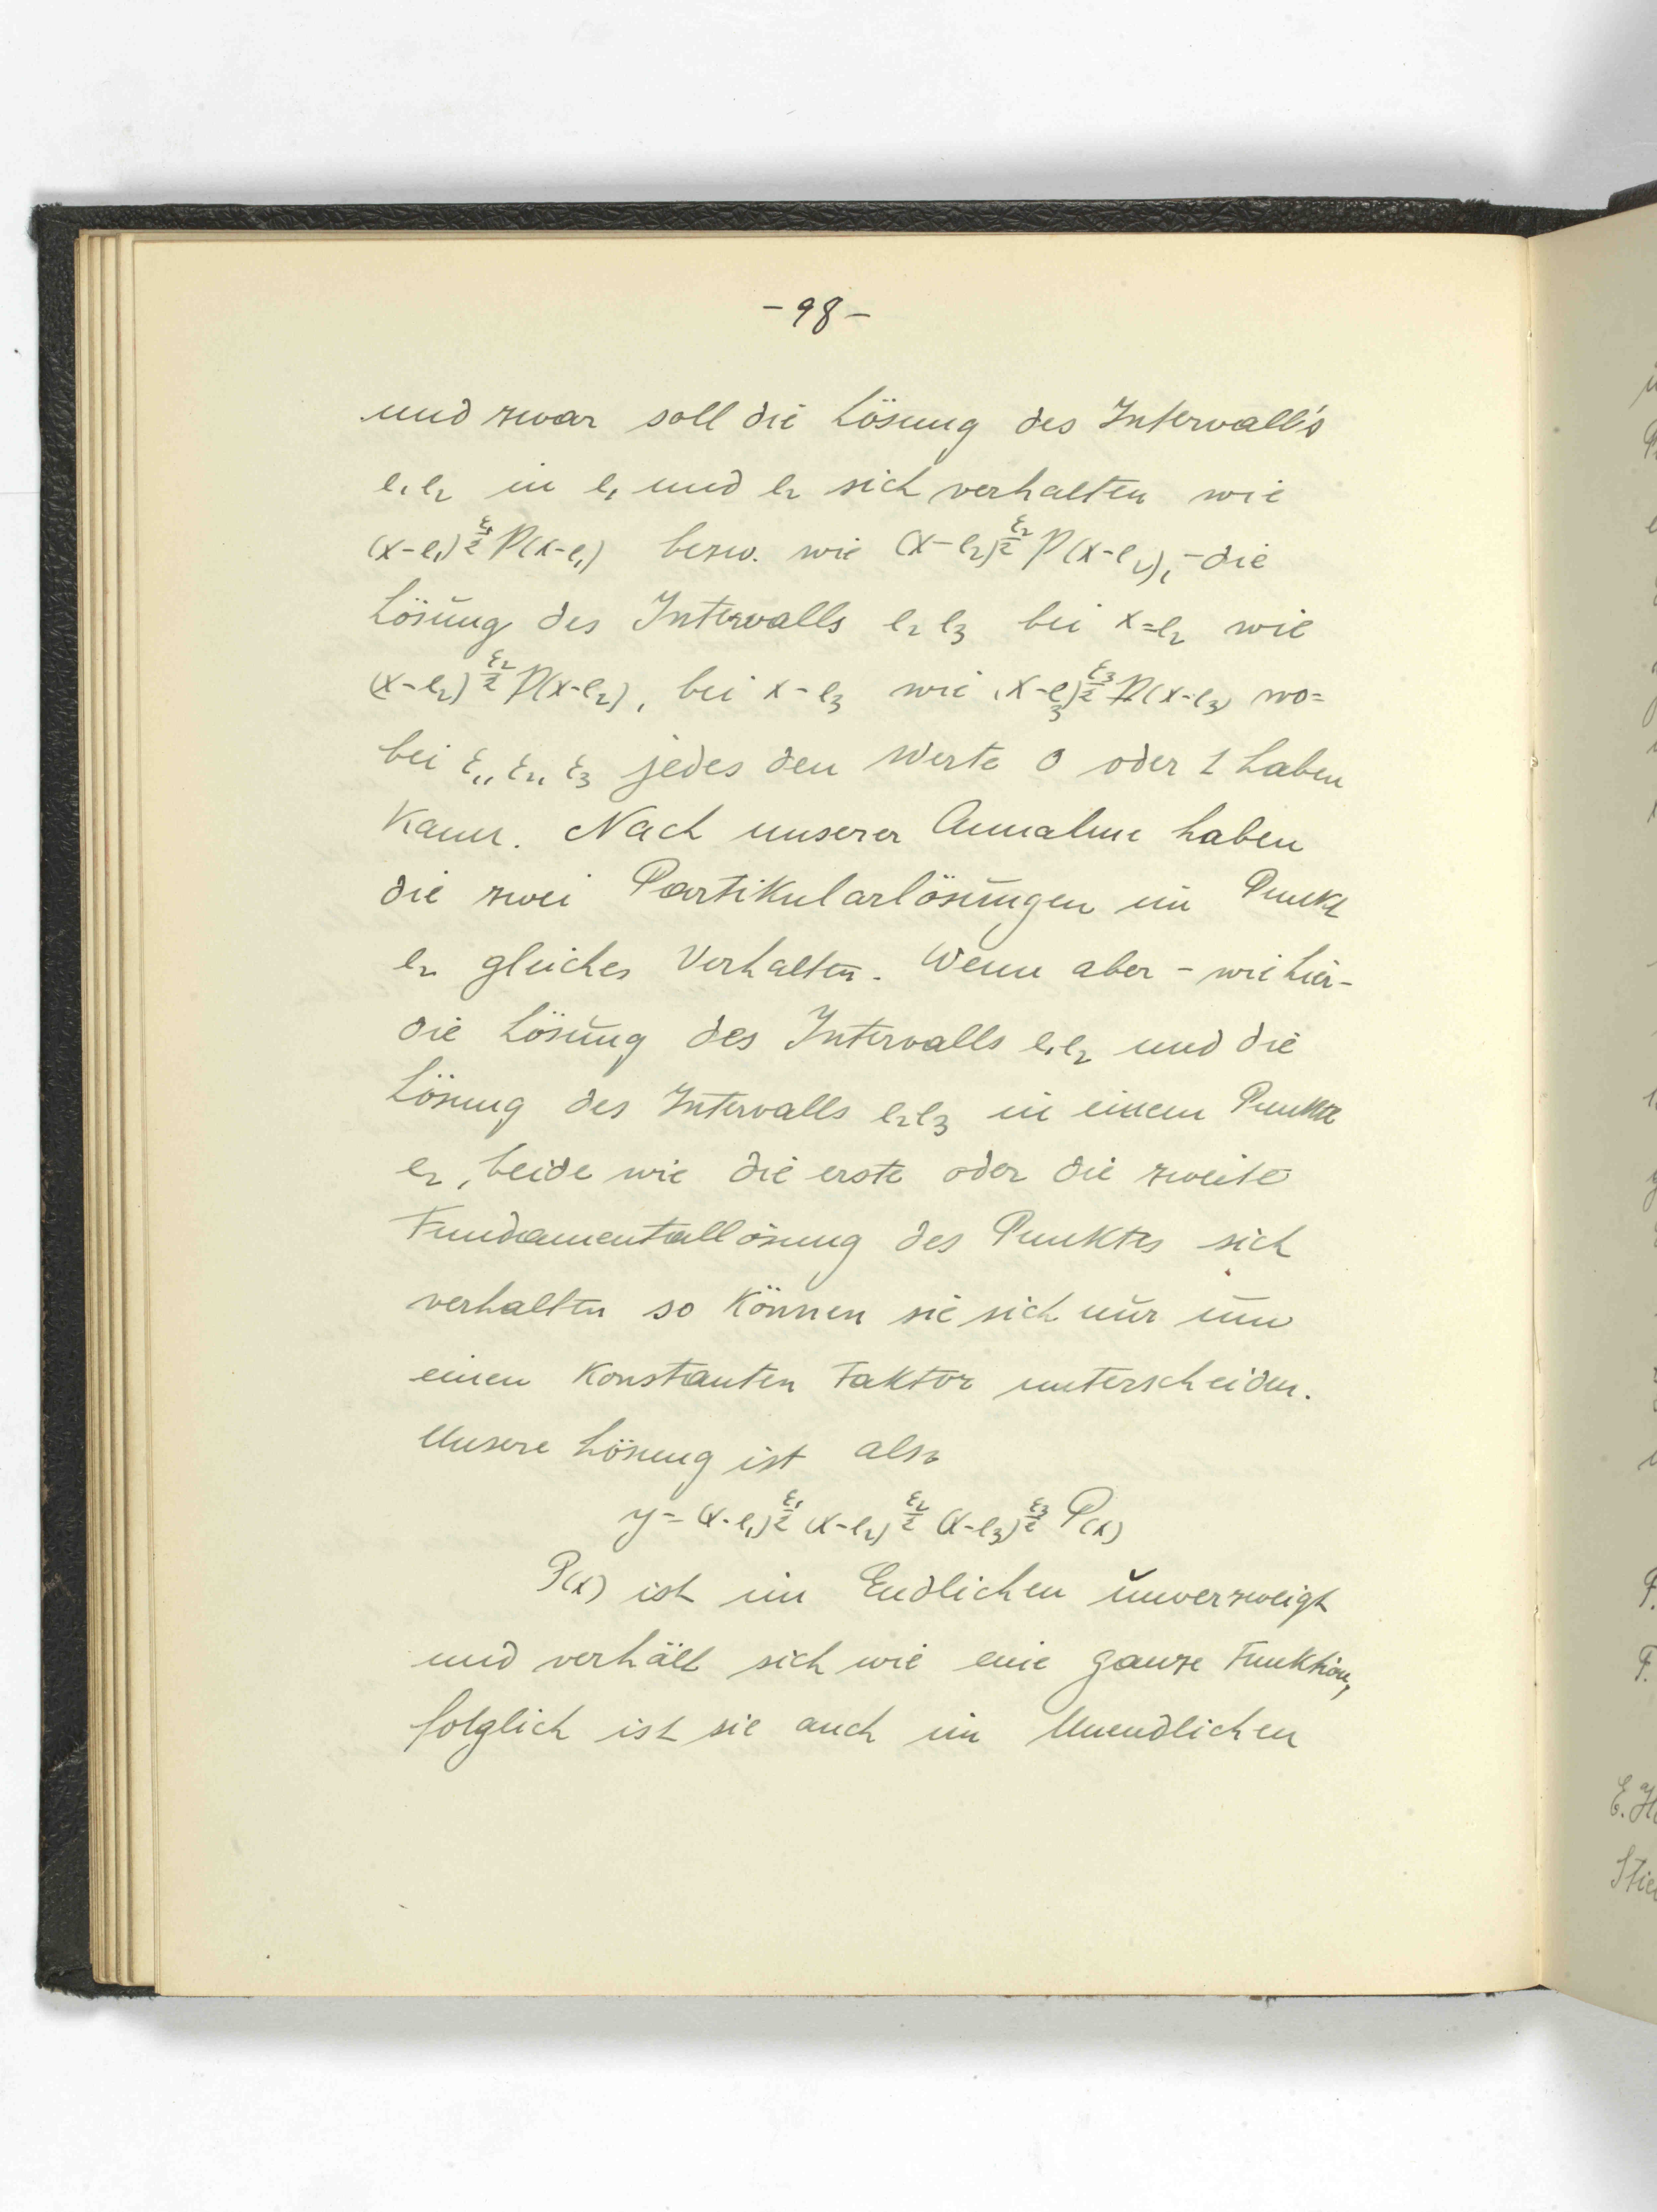 -98-
und zwar soll die Lösung des Intervall's
e₁e₂ in e₁ und e₂ sich verhalten wie
(x-e₁)^(ε₁/2) P(x-e₁) bezw. wie (x-e₂)^(ε₂/2) P(x-e₂), - die
Lösung des Intervalls e₂e₃ bei x=e₂ wie
(x-e₂)^(ε₂/2) P(x-e₂), bei x-e₃ wie (x-e₃)^(ε₃/2) P(x-e₃) wo=
bei ε₁, ε₂, ε₃ jedes den Werte 0 oder 1 haben
kann. Nach unserer Annahme haben
die zwei Partikularlösungen im Punkt
e₂ gleiches Verhalten. Wenn aber - wie hier -
die Lösung des Intervalls e₁e₂ und die
Lösung des Intervalls e₂e₃ in einem Punkte
e₂, beide wie die erste oder die zweite
Fundamentallösung des Punktes sich
verhalten so können sie sich nur um
einen konstanten Faktor unterscheiden.
Unsere Lösung ist also
y = (x-e₁)^(ε₁/2) (x-e₂)^(ε₂/2) (x-e₃)^(ε₃/2) P(x)
P(x) ist im Endlichen unverzweigt
und verhält sich wie eine ganze Funktion,
folglich ist sie auch im Unendlichen